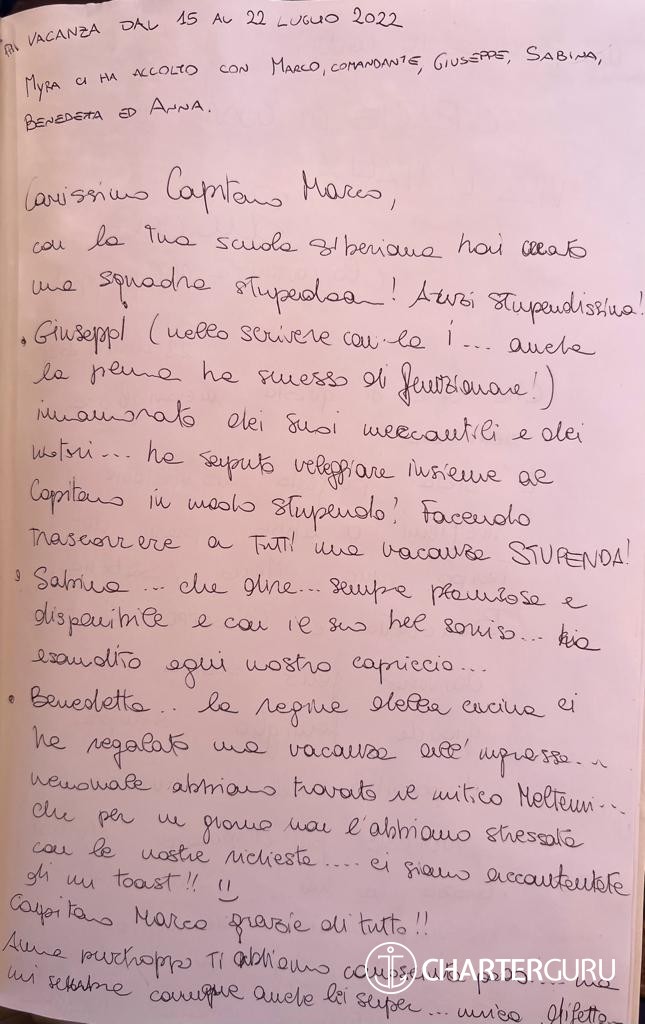 VACANZA DAL 15 AL 22 LUGLIO 2022
MYRA CI HA ACCOLTO CON MARCO, COMANDANTE, GIUSEPPE, SABINA,
BENEDETTA ED ANNA.
Carissimo Capitano Marco,
con la tua scuola siberiana hai creato
una squadra stupenda! Anzi stupendissima!
• Giuseppi (nello scrivere con la i... anche
la penna ha smesso di funzionare!)
innamorato dei suoi mercantili e dei
motori... ha saputo veleggiare insieme al
Capitano in modo stupendo! Facendo
trascorrere a tutti una vacanza STUPENDA!
• Sabina... che dire... sempre premurosa e
disponibile e con il suo bel sorriso... ha
esaudito ogni nostro capriccio...
• Benedetta.. la regina della cucina ci
ha regalato una vacanza all'ingrasso...
nemmale abbiamo trovato il mitico Meltemi...
che per un giorno non l'abbiamo stressata
con le nostre richieste.... ci siamo accontentate
di un toast!! :)
Capitano Marco grazie di tutto!!
Anna purtroppo ti abbiamo conosciuta poco... ma
mi sembra comunque anche lei super... unico difetto
CHARTERGURU